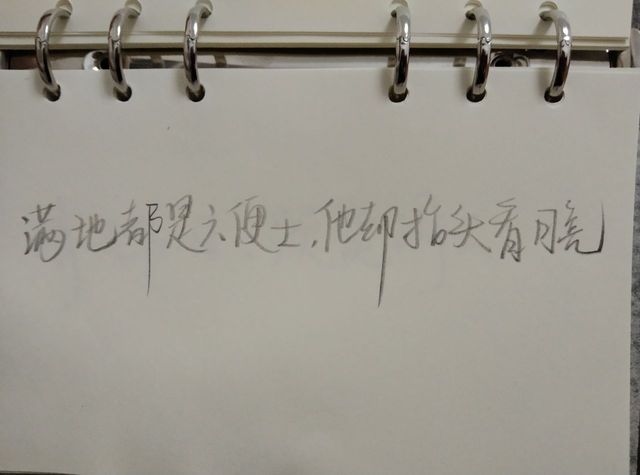 满地都是六便士，他却抬头看月亮